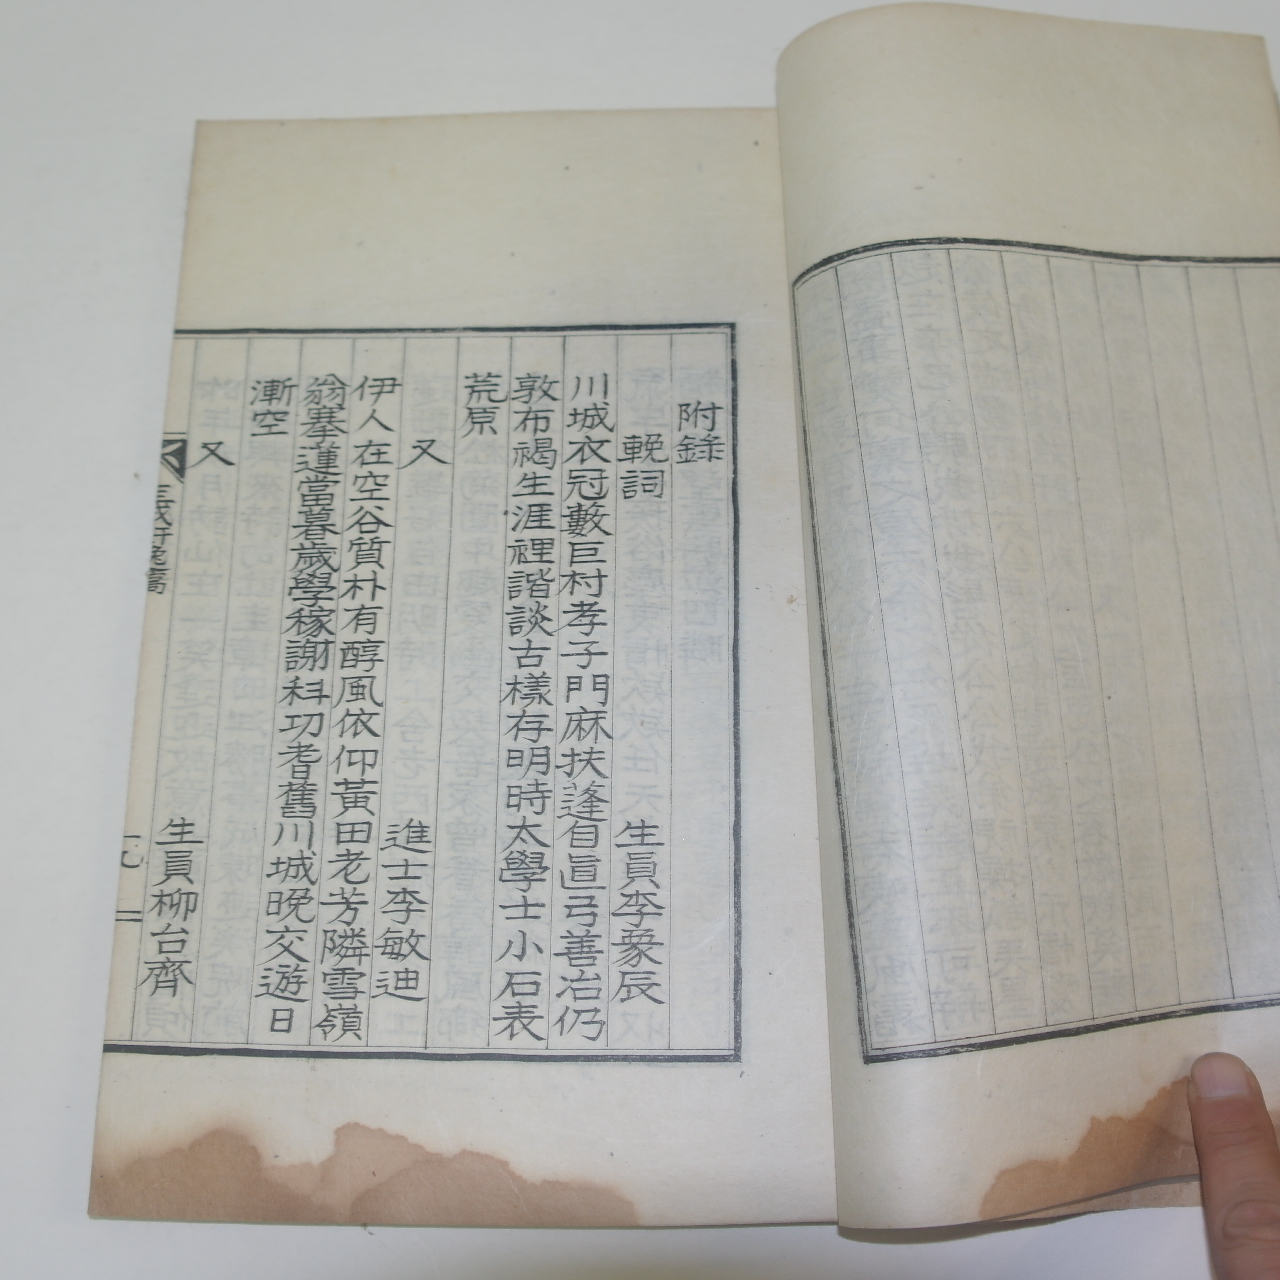 附錄
輓詞
生員李象辰
川城衣冠藪巨村孝子門麻扶蓬自直弓善冶仍
敦布褐生涯裡諧談古樣存明時太學士小石表
荒原
又
進士李敏迪
伊人在空谷質朴有醇風依仰黃田老芳隣雪嶺
翁搴蓮當暮歲學稼謝科功耆舊川城晚交遊日
漸空
又
生員柳台齊